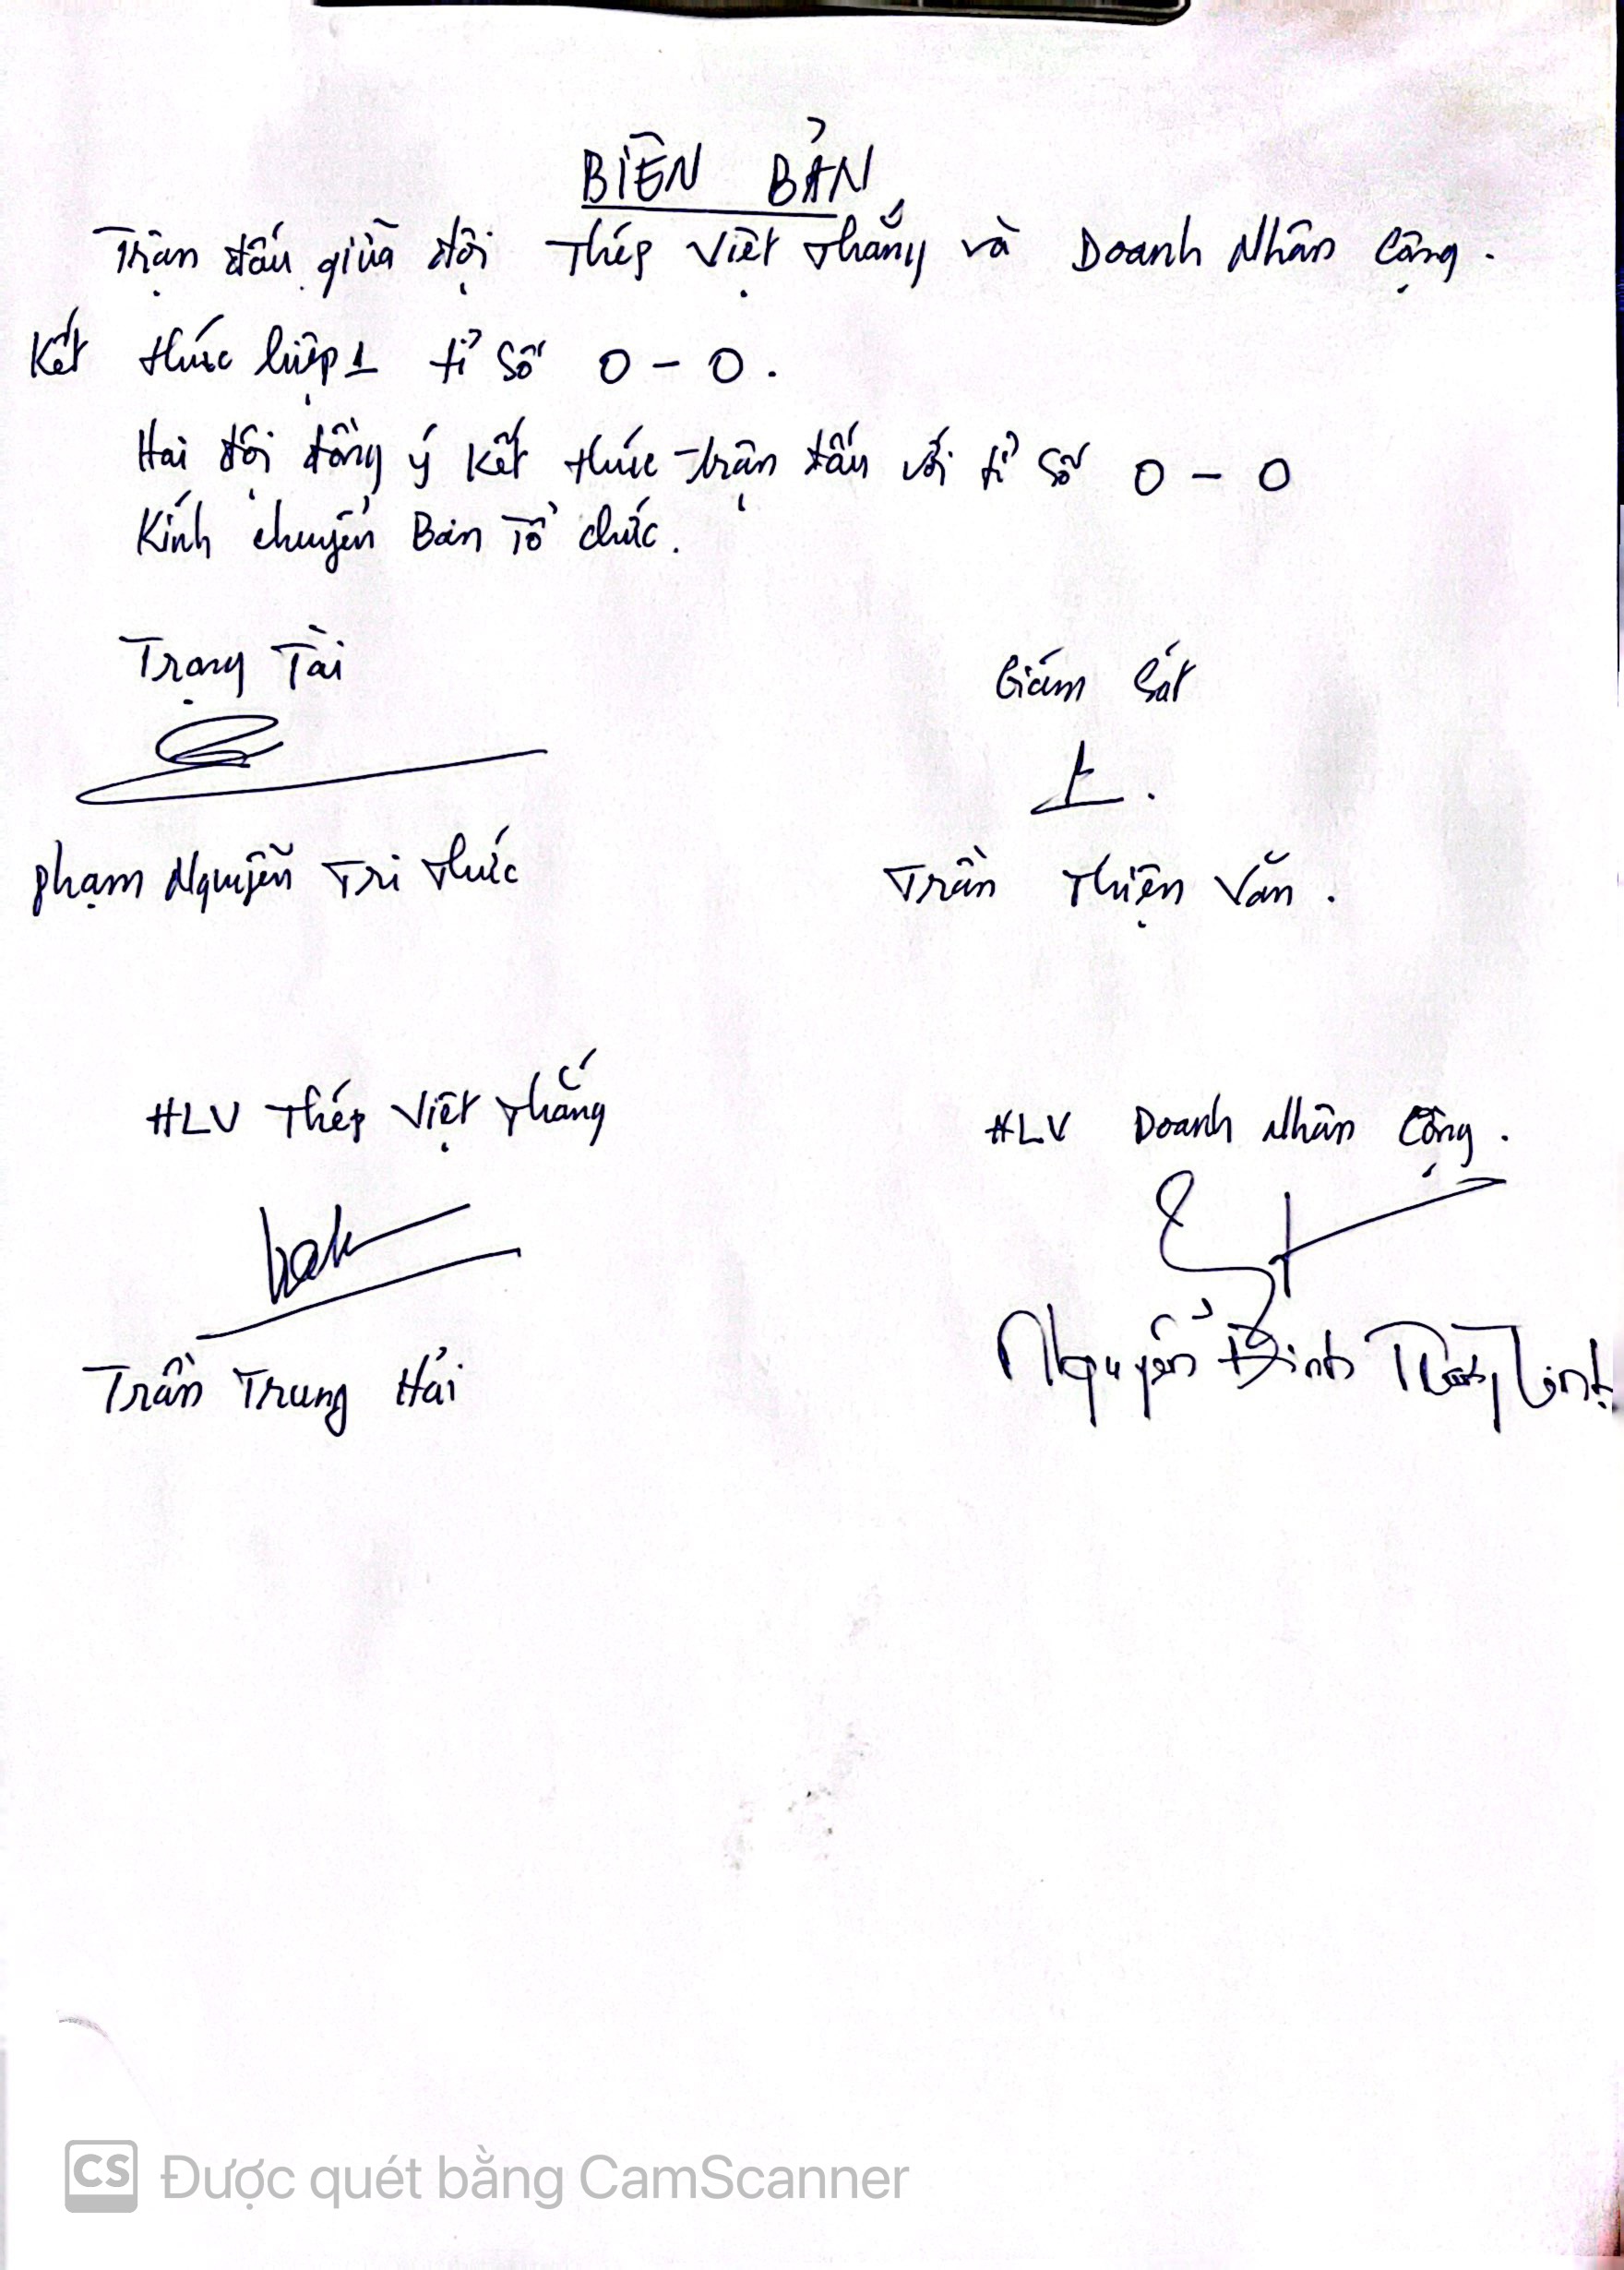 BIÊN BẢN
Trận đấu giữa đội Thép Việt Thắng và Doanh Nhân Cộng.
Kết thúc hiệp 1 tỉ số 0 - 0.
Hai đội đồng ý kết thúc trận đấu với tỉ số 0 - 0
Kính chuyển Ban Tổ chức.
Trọng Tài
Giám Sát
Phạm Nguyễn Tri Thức
Trần Thiện Văn.
HLV Thép Việt Thắng
HLV Doanh Nhân Cộng.
Trần Trung Hải
Nguyễn Đình
CS Được quét bằng CamScanner